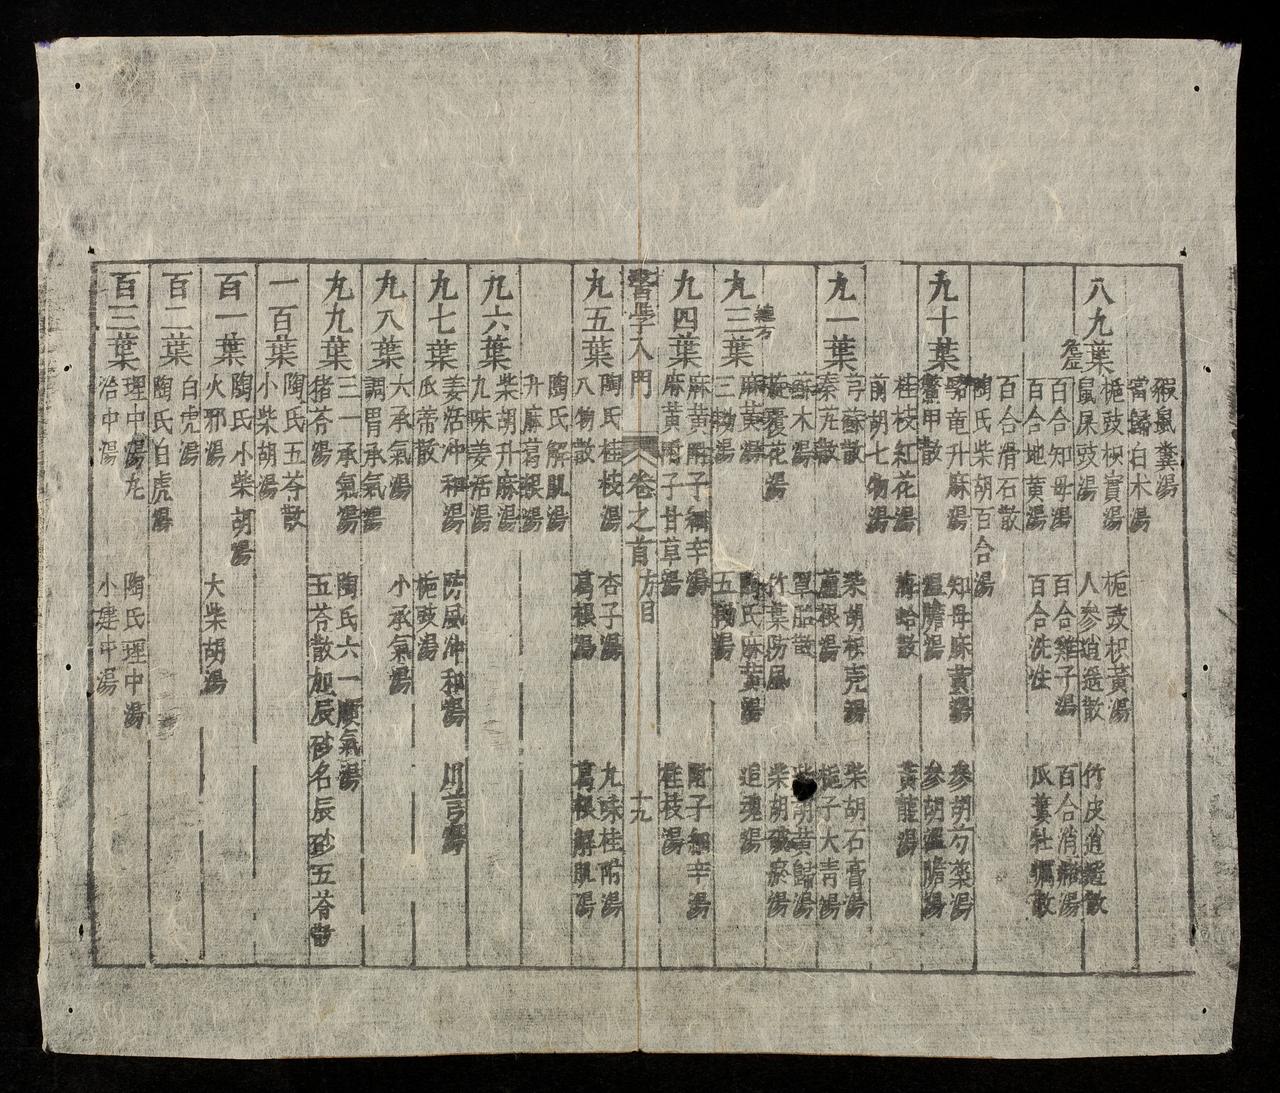 猳鼠糞湯
當歸白朮湯
八九葉
梔豉枳實湯 梔豉枳黃湯
鼠屎豉湯 人參逍遙散 竹皮逍遙散
百合知母湯 百合雞子湯 百合消渴湯
百合地黃湯 百合洗法 瓜蔞牡蠣散
百合滑石散
陶氏柴胡百合湯
九十葉
升麻湯 知母麻黃湯 參胡芍藥湯
鱉甲散 溫膽湯 參胡溫膽湯
桂枝紅花湯 海蛤散 黃龍湯
前胡七物湯
九一葉
芎蘇散 柴胡枳壳湯 柴胡石膏湯
秦艽散 蘆根湯 梔子大青湯
蘇木湯 覃胎散 柴胡黃
旋覆花湯 竹葉防風 柴胡破瘀湯
九三葉
麻黃湯 陶氏麻黃湯 追魂湯
三物湯 五物湯
九四葉
麻黃附子細辛湯 附子細辛湯
麻黃附子甘草湯 桂枝湯
醫學入門 卷之首 方目 十九
九五葉
陶氏桂枝湯 杏子湯 九味桂附湯
八物散 葛根湯 葛根解肌湯
陶氏解肌湯
升麻葛根湯
九六葉
柴胡升麻湯
九味羌活湯
九七葉
羌活冲和湯 防風冲和湯 川芎湯
瓜蒂散 梔豉湯
九八葉
大承氣湯 小承氣湯
調胃承氣湯
九九葉
三一承氣湯 陶氏六一順氣湯
猪苓湯 五苓散加辰砂名辰砂五苓散
一百葉
陶氏五苓散
小柴胡湯
百一葉
陶氏小柴胡湯
火邪湯 大柴胡湯
百二葉
白虎湯
陶氏白虎湯
百三葉
理中湯丸 陶氏理中湯
治中湯 小建中湯